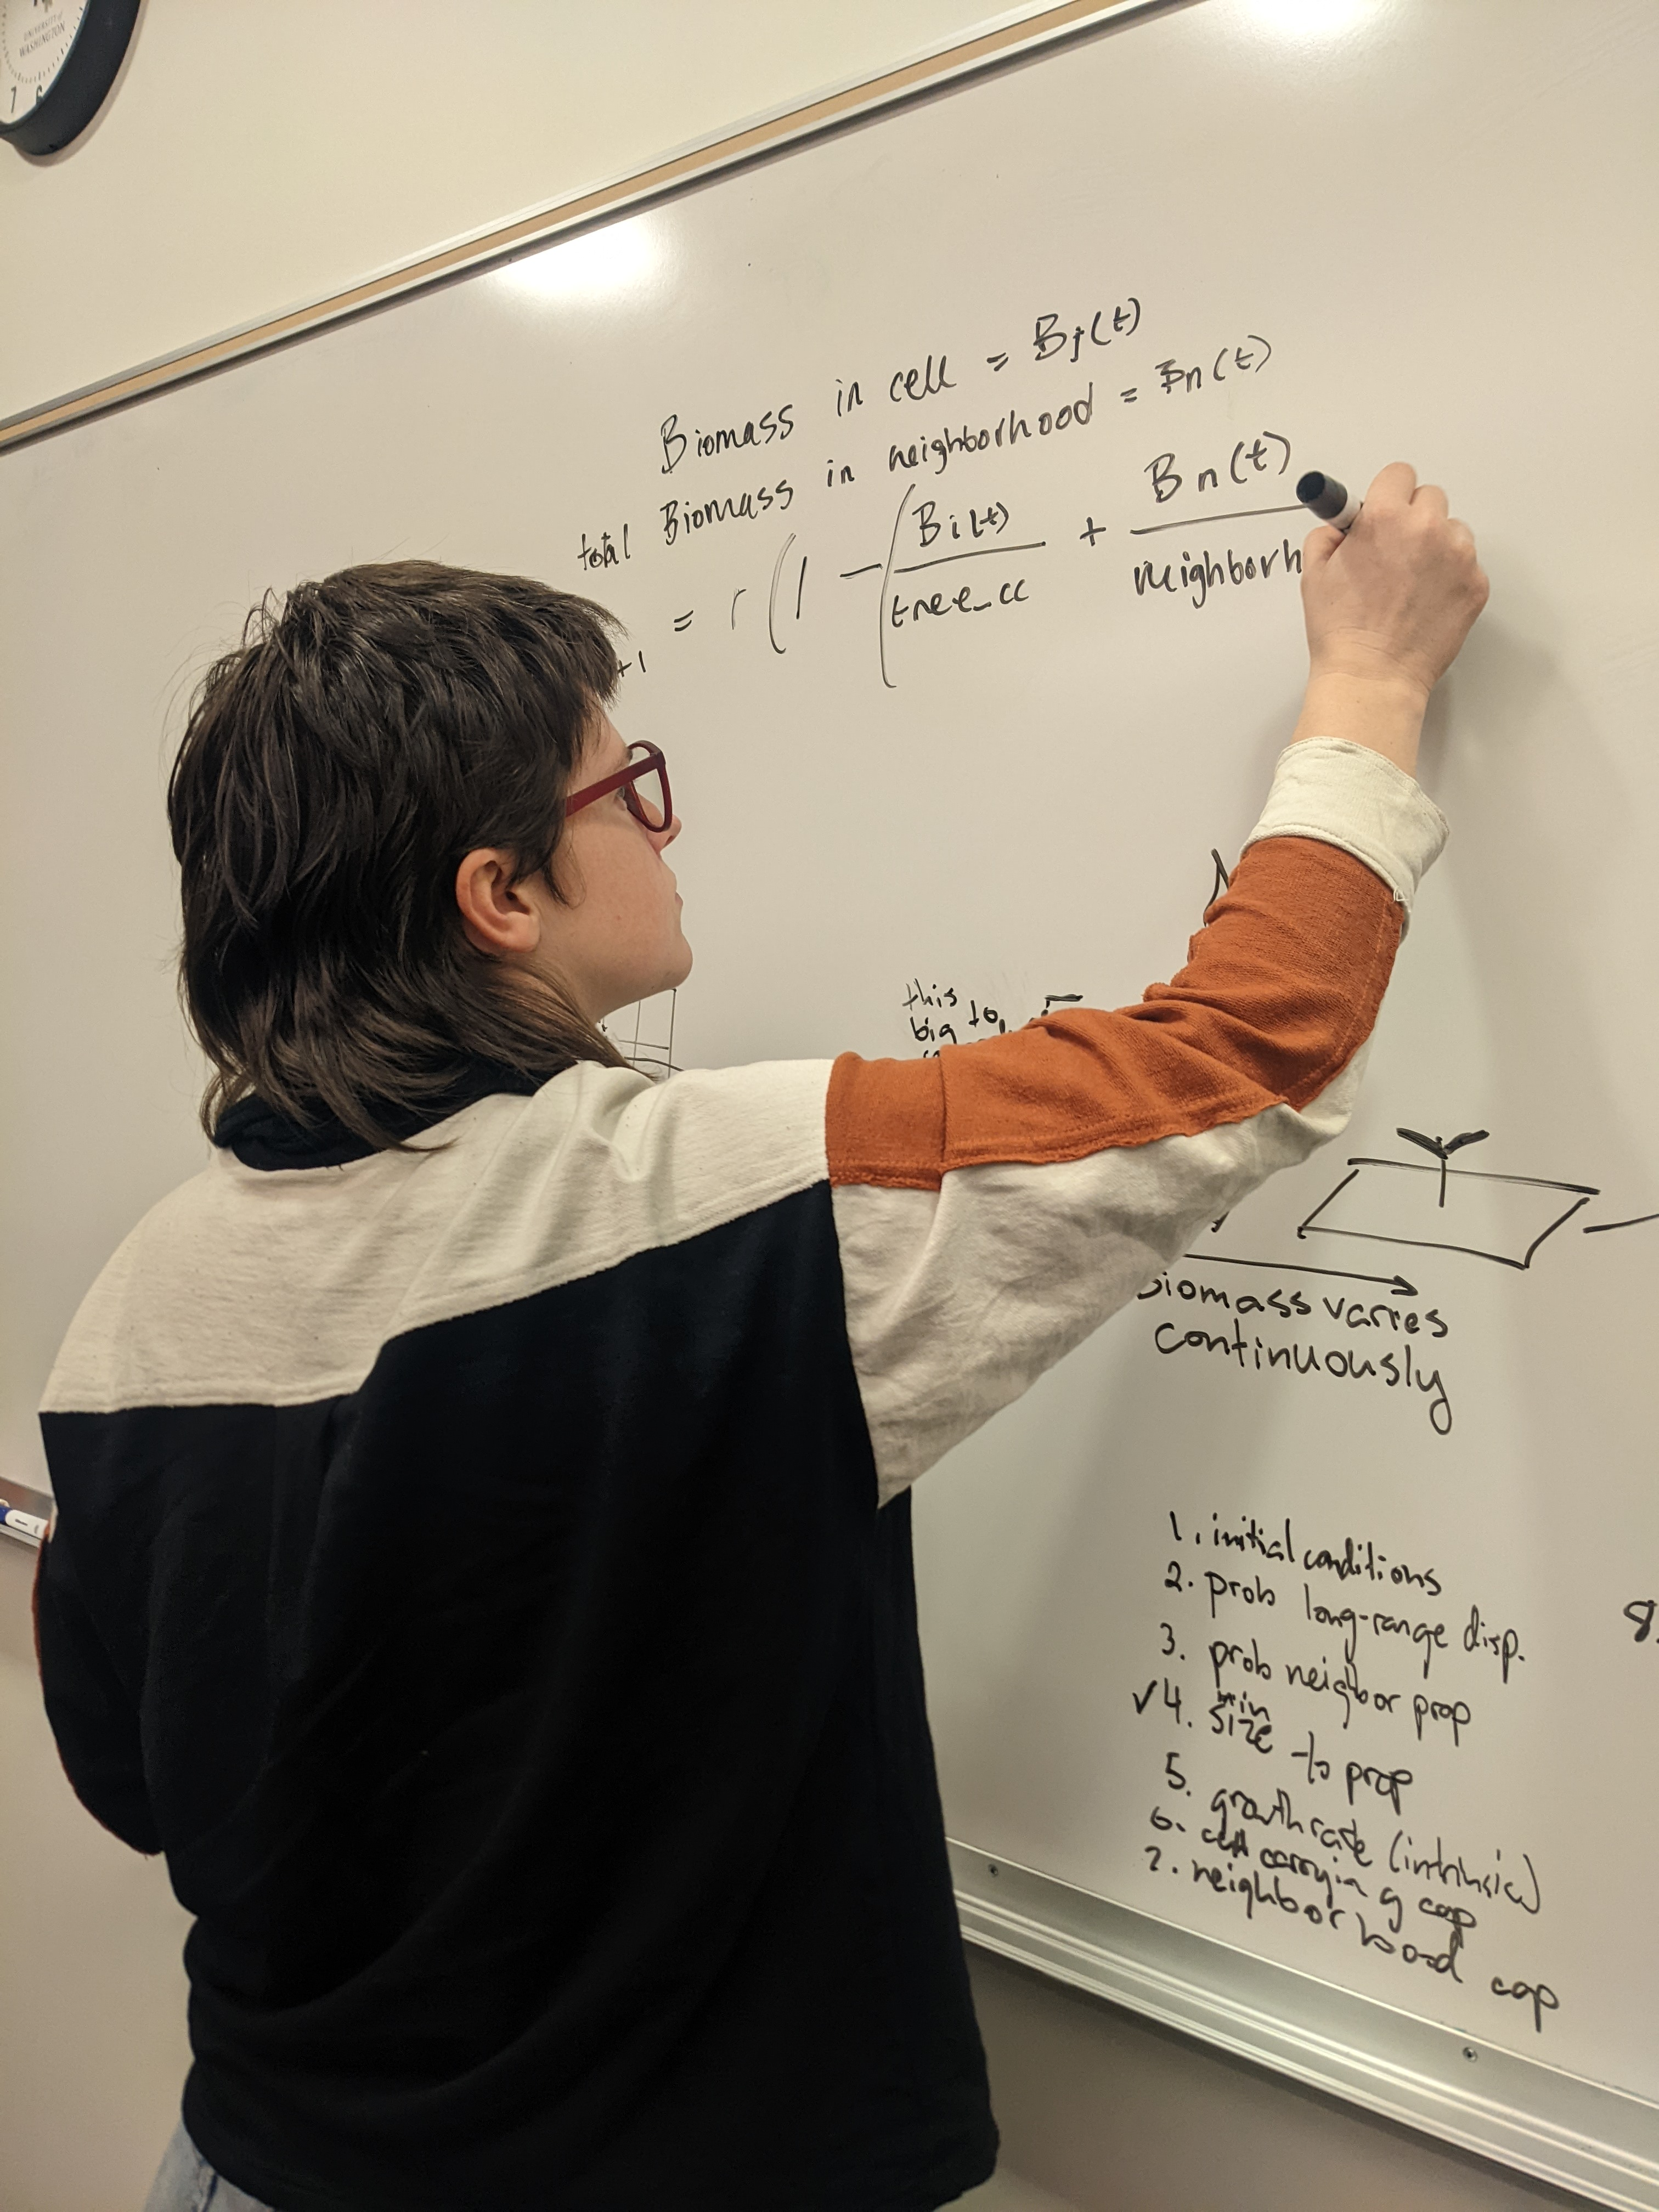 UNIVERSITY of
WASHINGTON
7 6
Biomass in cell = Bj(t)
total Biomass in neighborhood = Bn(t)
Bi(t) Bn(t)
+1 = r(1 - ( +
tree_cc neighborh
this
big to
Biomass varies
continuously
1. initial conditions
2. prob long-range disp.
3. prob neighbor prop
✓4. min
size to prop
5. growth rate (intrinsic)
6. cell carrying cap
7. neighborhood cap
8.